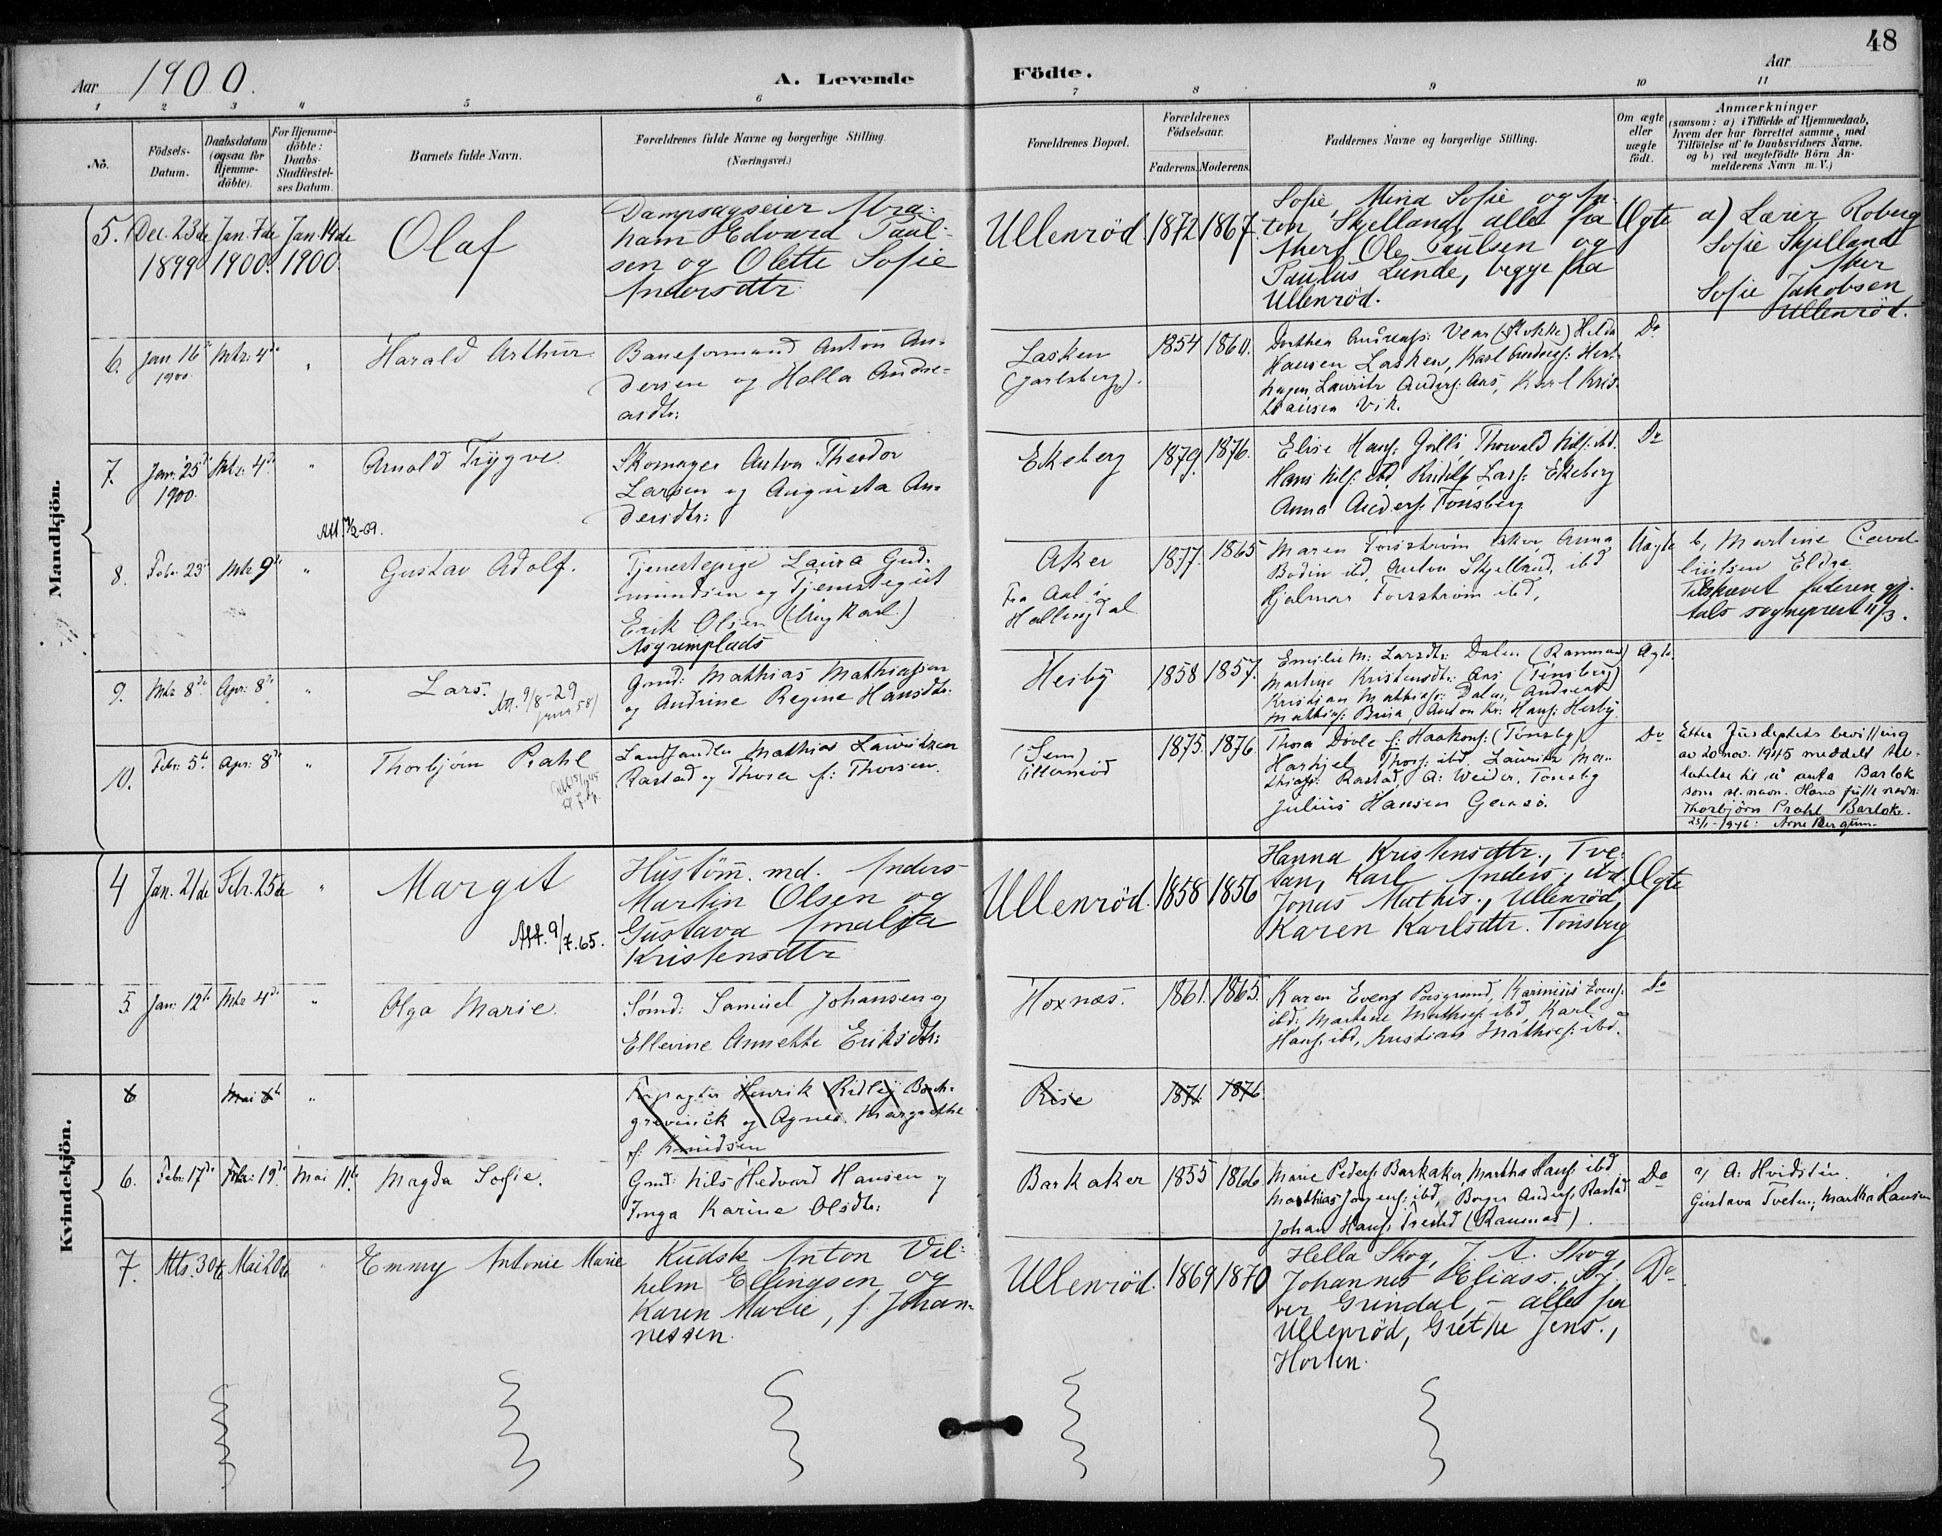 48
Aar 1900.
A. Levende Födte.
Aar
1 2 3 4 5 6 7 8 9 10 11
No.
Födsels-
Datum.
Daabsdatum
(ogsaa for
Hjemme-
döbte).
For Hjemme-
döbte:
Daabs-
Stadfæstel-
ses Datum.
Barnets fulde Navn.
Forældrenes fulde Navne og borgerlige Stilling.
(Næringsvei.)
Forældrenes Bopæl.
Forældrenes
Födselsaar.
Faderens. Moderens.
Faddernes Navne og borgerlige Stilling.
Om ægte
eller
uægte
födt.
Anmærkninger
(saasom: a) i Tilfælde af Hjemmedaab,
hvem der har forrettet samme, med
Tilföielse af to Daabsvidners Navne,
og b) ved uægtefödte Börn An-
melderens Navn m. V.)
Mandkjön.
5. Dec. 23de
1899
Jan. 7de
1900.
Jan. 14de
1900.
Olaf
Dampsagseier Abra-
ham Edvard Paul-
sen og Olette Sofie
Andersdtr.
Ullenröd. 1872 1867.
Sofie Mina Sofie og An-
ton Skjelland, alle fra
Aker, Ole Paulsen og
Paulus Lunde, begge fra
Ullenröd.
Ægte
a) Lærer Roberg
Sofie Skjelland
Aker
Sofie Jakobsen
Ullenröd.
6. Jan 16de
1900.
Mrz. 4de
"
Harald Arthur.
Baneformand Anton An-
dersen og Halla Andre-
asdtr:
Lasken
(Jarlsberg).
1854 1860.
Dorthea Andreass: Vear (Stokke) Hilda
Hansen Lasken, Karl Andreas:
Lauritz Anders: Aas, Karl Kris-
tiansen Vik.
Do
7. Jan. 25de
1900.
Mrz. 4de
"
Arnold Trygve.
Skomager Anton Theodor
Larsen og Augusta An-
dersdtr:
Ekeberg 1879. 1876.
Elise Hans: Thorvald Nils: ibd.
Hans Nils: ibd, Lars: Ekeberg
Anna Anders: Tönsberg
Do
8. Febr. 23de Mrz 9de
"
Att. 09.
Gustav Adolf.
Tjenestepige Laura Gud-
mundsen og Tjenestegut
Erik Olsen (Ungkarl.)
Asgrimplads
Aker
Fra Aal i
Hallingdal
1877. 1865
Maren Forsstrøm Aker, Anna
Bodin ibd, Anton Skjelland, ibd
Hjalmar Forsstrøm ibd,
Uægte
b, Martine
Eldre.
Tilskrevet faderen gj.
Aals sogneprest 11/3.
9. Mrz 8de Apr: 8de
"
Lars.
Att. 9/8-29
Gmd: Mathias Mathiassen
og Andrine Regine Hansdtr:
Hesby 1858 1857.
Emilie M: Larsdtr: Dalen (Ramnæs)
Martine Kristensdtr: Aas (Tönsberg)
Kristian Mathias: Dalen, Andreas
Mathias: Anton Kr: Hans: Hesby.
Ægte.
10. Febr: 5te Apr: 8de
"
Thorbjörn Prahl
Landhandler Mathias Lauritzen
Rastad og Thora f: Thorsen.
(Sem)
Ullernröd
1875. 1876
Thora Dövle f: Haakons: (Tönsbg),
Thors: ibd. Lauritz Ma-
thias: Rastad, A: Weider, Tönsbg
Julius Hansen
Do
Etter Jusdeptets bevilling
av 20 nov. 1945 meddelt til-
latelse til å anta Barlok
som sl.navn. Hans fulle navn:
Thorbjörn Prahl Barlok.
23/1-1946: Arne Bergum.
Kvindekjön.
4 Jan. 21de Febr. 25de
"
Margit
Att. 9/7.65.
Hustöm. md. Anders
Martin Olsen og
Gustava Amalia
Kristensdtr
Ullenröd. 1858 1856
Hanna Kristensdtr., Tve-
tan, Karl Anders., ibd,
Jonas Mathis., Ullenröd,
Karen Karlsdtr. Tönsbrg
Ægte
5 Jan: 12te Mrz 4de
"
Olga Marie.
Sömd: Samuel Johansen og
Ellevine Annette Eriksdtr:
Hoxnæs. 1861. 1865.
Karen Evens: Porsgrund, Evens:
ibd: Martine Mathias: ibd, Karl
Hans: ibd, Kristian Mathias: ibd.
Do
6 Mai 6te
"
Forpagter Henrik Ridley Borch-
grevinck og Agnes Margrethe
f: Knudsen
Rise 1871 1876
6. Febr: 17de Febr. 19de Mai 11te
Magda Sofie.
Gmd: Nils Hedvard Hansen og
Inga Karine Olsdtr:
Barkaker 1855 1866
Marie Peders: Barkaker, Martha Hans: ibd
Mathias Jörgens: ibd, Borger Anders: Rastad
Johan Hans: (Ramnæs).
Do
a) A: Hvidsten.
Gustava Tveten; Martha Hansen
7. Mts. 30te Mai 20de
"
Emmy Antonie Marie
Kudsk Anton Vil-
helm Ellingsen og
Karen Marie, f. Johan-
nessen.
Ullenröd. 1869 1870
Hella Skog, J. A. Skog,
Johannes Eliass.,
Grindal, – alle fra
Ullenröd, Grethe Jens.,
Horten.
Do